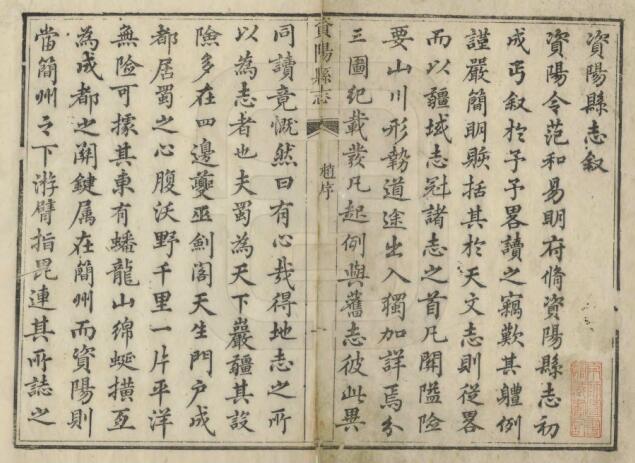 資陽縣志叙
資陽令范和易明府脩資陽縣志初
成丐叙於予予畧讀之竊歎其軆例
謹嚴簡明賅括其於天文志則從畧
而以疆域志冠諸志之首凡關隘險
要山川形勢道途出入獨加詳焉分
三圖紀載發凡起例與舊志彼此異
資陽縣志
趙序
同讀竟慨然曰有心哉得地志之所
以為志者也夫蜀為天下巖疆其設
險多在四邊夔巫劍閣天生門户成
都居蜀之心腹沃野千里一片平洋
無險可據其東有蟠龍山綿蜒橫亙
為成都之関鍵属在簡州而資陽則
當簡州之下游臂指毘連其所誌之